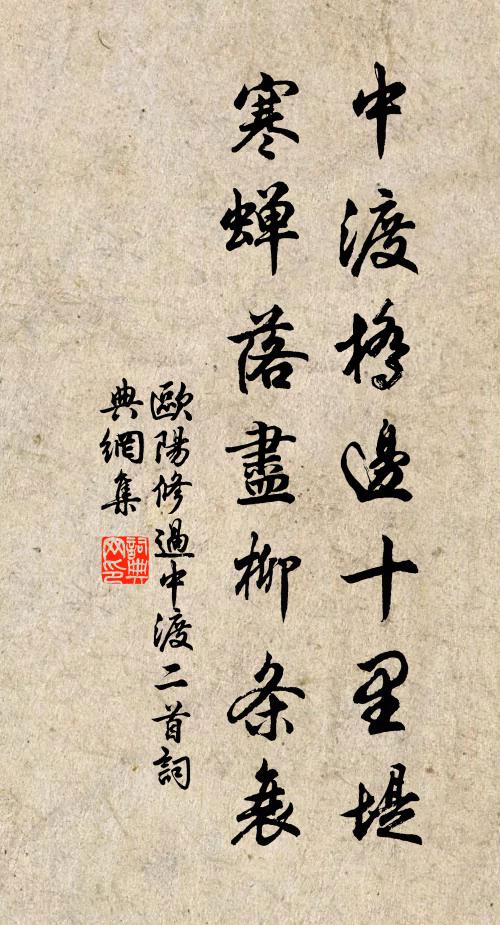 中渡橋邊十里堤
寒蝉落盡柳条衰
歐陽修過中渡二首詞
典網集
詞典
网印